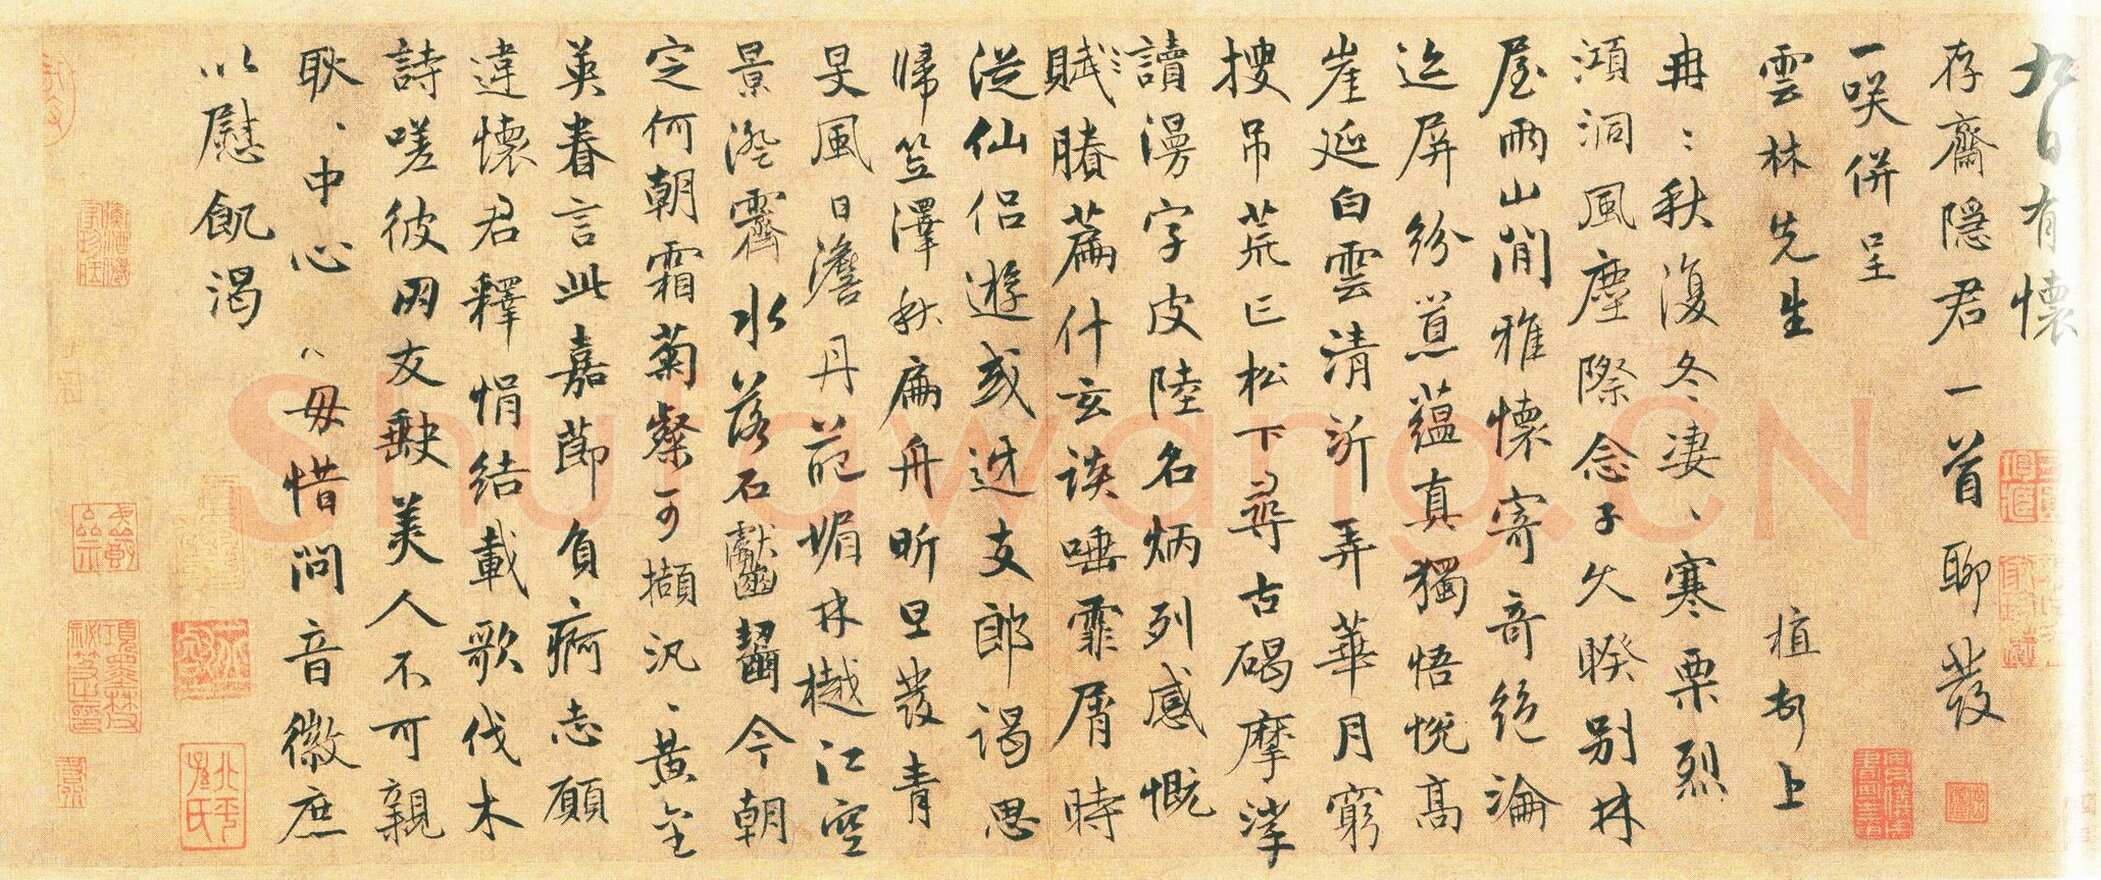 九日有懷
存齋隱君一首聊發
一咲併呈
雲林先生 植頓上
冉冉秋復冬淒淒寒栗烈
澒洞風塵際念子久暌别林
屋兩山間雅懷寄奇絶淪
迄屏紛蒠蘊真獨悟悅高
崖延白雲清沂弄華月窮
搜吊荒亡松下尋古碣摩挲
讀漫字皮陸名炳列感慨
賦賸篇什玄談唾霏屑時
從仙侣遊或迓支郎謁思
歸笠澤秋扁舟昕旦發青
旻風日澹丹葩媚林樾江空
景澄霽水落石齾齾今朝
定何朝霜菊粲可擷汎汎黃金
英眷言此嘉節負痾志願
違懷君釋悁結載歌伐木
詩嗟彼罔友缺美人不可親
耿耿中心毋惜問音徽庶
以慰飢渴
shufawang.CN
北平孫氏